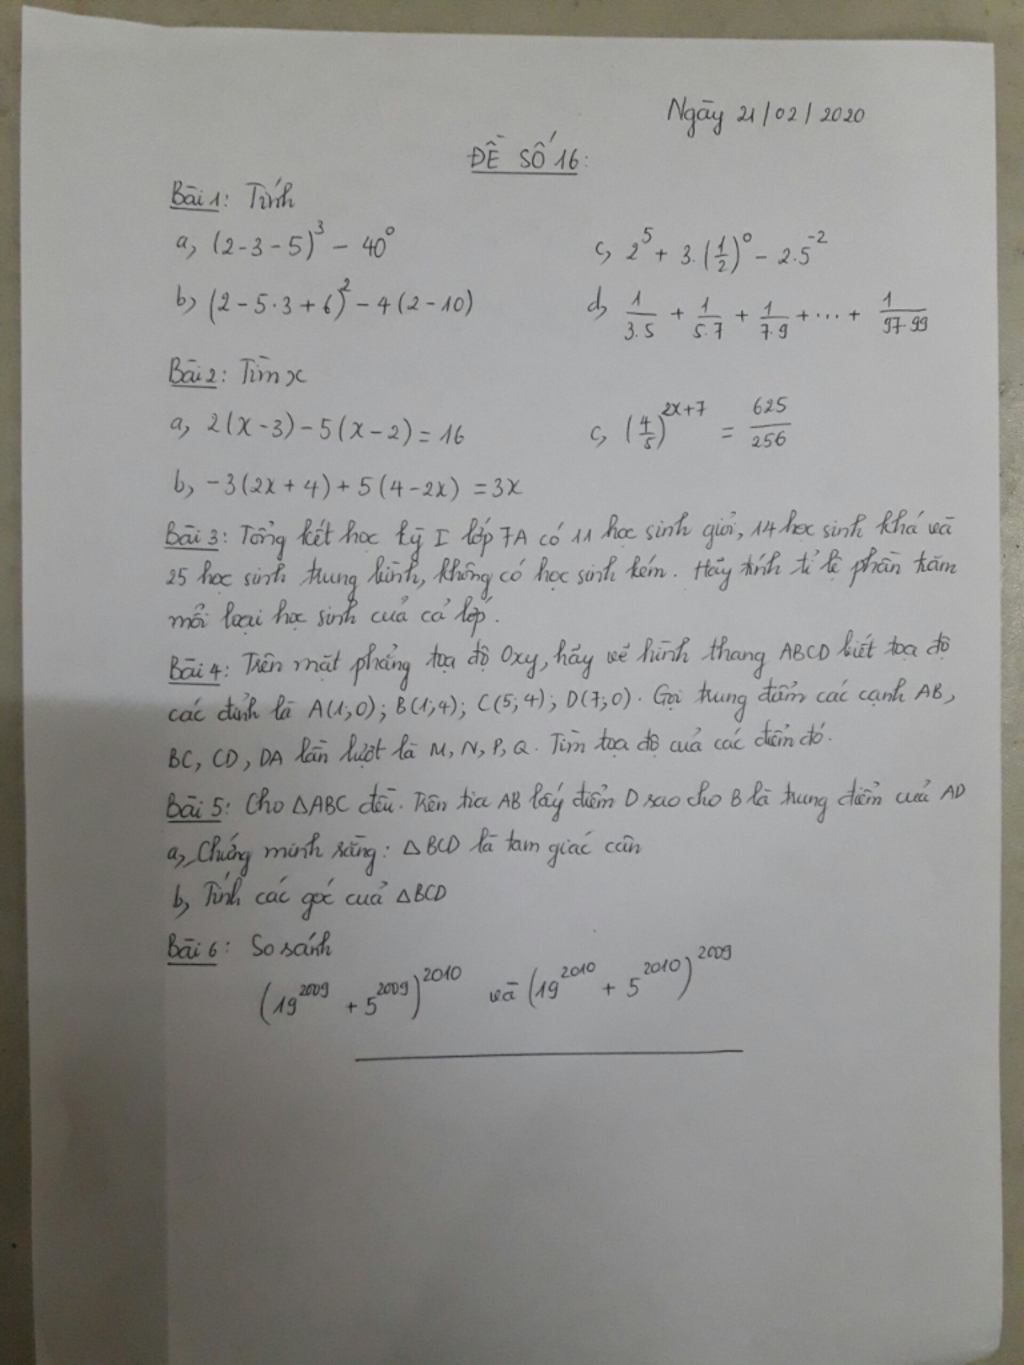 Ngày 21/02/2020
ĐỀ SỐ 16:
Bài 1: Tính
a, (2-3-5)³ - 40⁰
c, 2⁵ + 3.(1/2)⁰ - 2.5⁻²
b, (2-5.3+6)² - 4(2-10)
d, 1/3.5 + 1/5.7 + 1/7.9 + ... + 1/97.99
Bài 2: Tìm x
a, 2(x-3) - 5(x-2) = 16
c, (4/5)^(2x+7) = 625/256
b, -3(2x+4) + 5(4-2x) = 3x
Bài 3: Tổng kết học kỳ I lớp 7A có 11 học sinh giỏi, 14 học sinh khá và
25 học sinh trung bình, không có học sinh kém. Hãy tính tỉ lệ phần trăm
mỗi loại học sinh cuả cả lớp.
Bài 4: Trên mặt phẳng tọa độ Oxy, hãy vẽ hình thang ABCD biết tọa độ
các đỉnh là A(1;0); B(1;4); C(5;4); D(7;0). Gọi trung điểm các cạnh AB,
BC, CD, DA lần lượt là M, N, P, Q. Tìm tọa độ cuả các điểm đó.
Bài 5: Cho △ABC đều. Trên tia AB lấy điểm D sao cho B là trung điểm cuả AD
a, Chứng minh rằng: △BCD là tam giác cân
b, Tính các góc cuả △BCD
Bài 6: So sánh
(19²⁰⁰⁹ + 5²⁰⁰⁹)²⁰¹⁰ và (19²⁰¹⁰ + 5²⁰¹⁰)²⁰⁰⁹